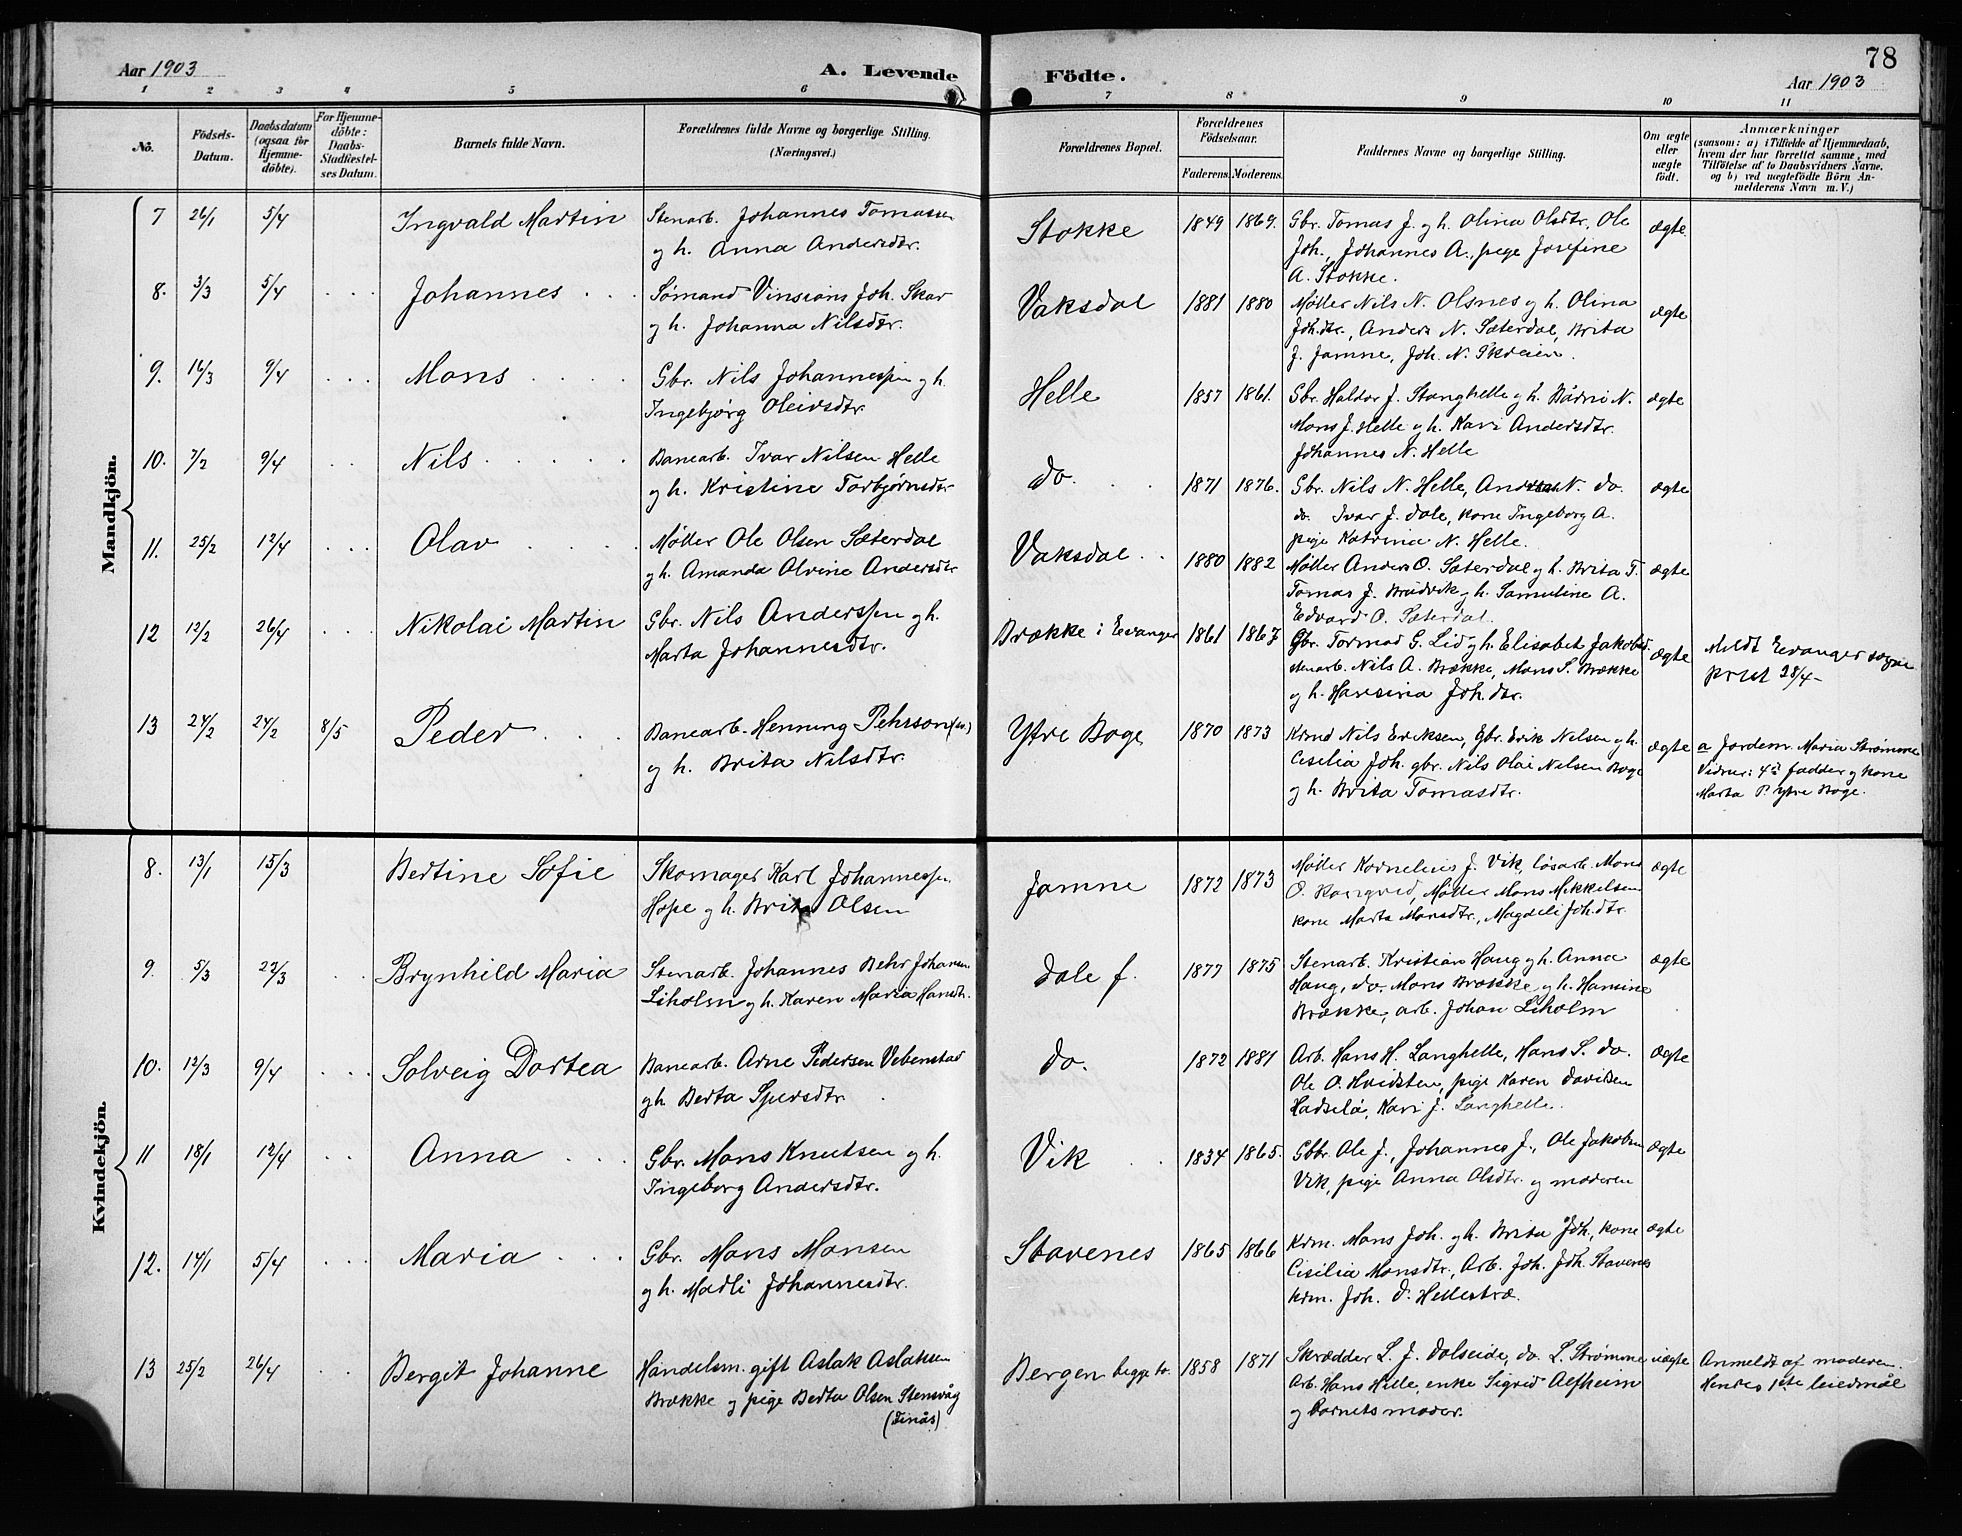 78
Aar 1903 A. Levende Födte. Aar 1903
1 2 3 4 5 6 7 8 9 10 11
No.
Födsels-
Datum.
Daabsdatum
(ogsaa for
Hjemme-
döbte).
For Hjemme-
döbte:
Daabs-
Stadfæstel-
ses Datum.
Barnets fulde Navn.
Forældrenes fulde Navne og borgerlige Stilling.
(Næringsvei.)
Forældrenes Bopæl.
Forældrenes
Födselsaar.
Faderens. Moderens.
Faddernes Navne og borgerlige Stilling.
Om ægte
eller
uægte
födt.
Anmærkninger
(saasom: a) i Tilfælde af Hjemmedaab,
hvem der har forrettet samme, med
Tilföielse af to Daabsvidners Navne,
og b) ved uægtefödte Börn An-
melderens Navn m. V.)
Mandkjön.
7 26/1 5/4 Ingvald Martin
Stenarb. Johannes Tomassen
og h. Anna Andersdtr.
Stokke 1849 1869.
Gbr. Tomas J. og h. Olina Olsdtr, Ole
Joh., Johannes A., pige Josefine
A. Stokke.
ægte.
8. 3/3 5/4 Johannes
Sømand Vinsians Joh. Skar
og h. Johanna Nilsdtr.
Vaksdal 1881 1880
Møller Nils N. Olsnes og h. Olina
Joh.dtr., Anders N. Sæterdal, Brita
J. Jamne, Joh. N. Skreien.
ægte
9. 16/3 9/4 Mons
Gbr. Nils Johannessen og h.
Ingebjørg Oleivsdtr.
Helle 1857 1861.
Gbr. Haldor J. Stanghelle og h. Bårni N.
Mons J. Helle og h. Kari Andersdtr.
Johannes N. Helle
ægte
10. 7/2 9/4 Nils
Banearb. Ivar Nilsen Helle
og h. Kristine Torbjørnsdtr
do. 1871 1876.
Gbr. Nils N. Helle, N. do.
do. Ivar J. Dale, kone Ingeborg A.
pige Katrina N. Helle.
ægte
11. 25/2 12/4 Olav
Møller Ole Olsen Sæterdal
og h. Amanda Alvine Andersdtr
Vaksdal 1880 1882
Møller Anders O. Sæterdal og h. Brita T.
Tomas J. Brudvik og h. Samuline A.
Edvard O. Sæterdal.
ægte
12 12/2 26/4 Nikolai Martin
Gbr. Nils Anderssen og h.
Marta Johannesdtr.
Brække i Evanger 1861 1867
Gbr. Tormod G. Lid og h. Elisabet Jakobsd.
stenarb. Nils A. Brække, Mons S. Brække
og h. Hansina Joh.dtr.
ægte
Meldt Evanger sogne
prest 28/4-
13 24/2 24/2 8/5 Peder
Banearb. Henning Pehrson (sv.)
og h. Brita Nilsdtr.
Ytre Boge 1870 1873
Krmd Nils Eriksen, Gbr. Erik Nilsen og h.
Cisilia Joh. gbr. Nils Olai Nilsen Boge
og h. Brita Tomasdtr.
ægte
a Jordem. Maria Strømme
Vidner: 4de fadder og kone
Marta P. Ytre Boge.
Kvindekjön.
8. 13/1 15/3 Bertine Sofie
Skomager Karl Johannessen
Hope og h. Brita Olsen
Jamne 1872 1873
Møller Kornelius J. Vik, løsarb. Mons
O. Kongevid, Møller Mons Mikkelsen
kone Marta Monsdtr., Magdeli Joh.dtr.
ægte
9. 5/3 22/3 Brynhild Maria
Stenarb. Johannes Behr Johansen
Liholm og h. Karen Maria Hansdtr.
Dale f. 1877 1875
Stenarb. Kristian Haug og h. Anna
Haug, do. Mons Brække og h. Hansine
Brække, arb. Johan Liholm
ægte
10. 12/3 9/4 Solveig Dortea
Banearb. Arne Pedersen Vebenstad
og h. Berta Sjursdtr.
do. 1872 1881
Arb. Hans H. Langhelle, Hans S. do.
Ole O. Hvidsten, pige Karen Davidsen
Kari J. Langhelle.
ægte
11 18/1 12/4 Anna
Gbr. Mons Knutsen og h.
Ingeborg Andersdtr.
Vik 1834 1865.
Gbr. Ole J., Johannes J., Ole Jakobsen
Vik, pige Anna Olsdtr. og moderen
ægte
12. 14/1 5/4 Maria
Gbr. Mons Monsen
og h. Madli Johannesdtr.
Stavenes 1865 1866
Krm. Mons Joh. og h. Brita Joh, kone
Cisilia Monsdtr., Arb. Joh. Joh. Stavenes
krm. Joh. D. Hellestræ.
ægte
13 25/2 26/4 Bergit Johanne
Handelsm. gift Aslak Aslaksen
Brække og pige Berta Olsen Stensvåg
(Tinås)
Bergen begge to. 1858 1871
Skrædder L. J. Dalseide, do. L. Strømme
Arb. Hans Hille, enke Sigrid Alfheim
og Barnets moder.
uægte
Anmeldt af moderen.
Hendes 1ste leiermål